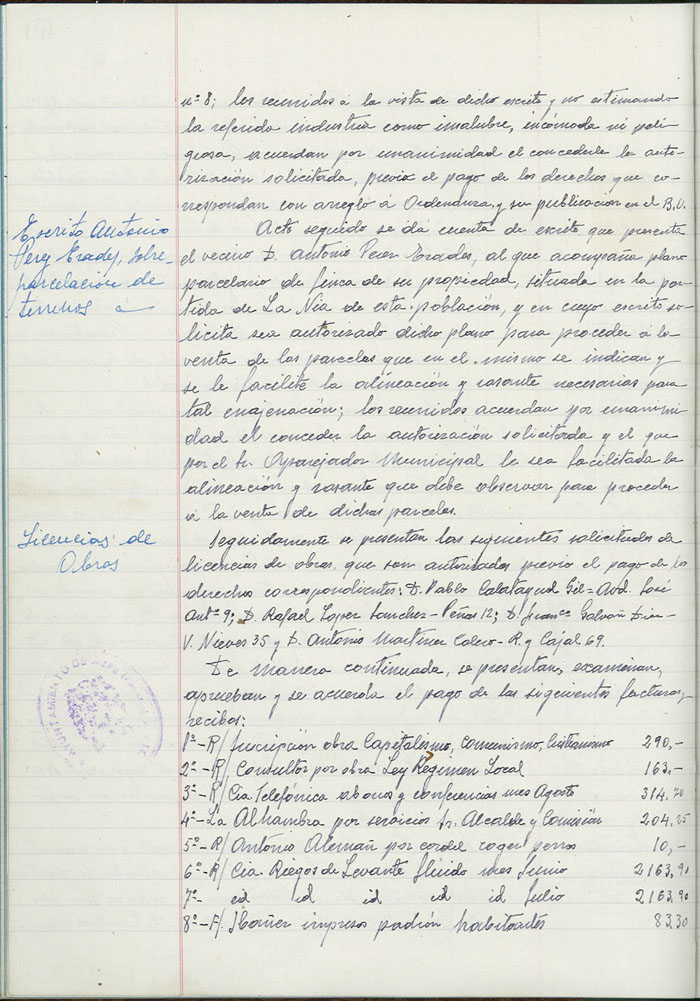 nº 8; los reunidos a la vista de dicho escrito y no estimando
la referida industria como insalubre, incómoda ni peli-
grosa, acuerdan por unanimidad el concederle la auto-
rización solicitada, previo el pago de los derechos que co-
rrespondan con arreglo a Ordenanza, y su publicación en el B.O.
Escrito Antonio
Perez Erades, sobre
parcelación de
terrenos
Acto seguido se da cuenta de escrito que presenta
el vecino D. Antonio Perez Erades, al que acompaña plano
parcelario de finca de su propiedad, situada en la par-
tida de La Nia de esta población, y en cuyo escrito so-
licita sea autorizado dicho plano para proceder a la
venta de las parcelas que en el mismo se indican y
se le facilite la alineación y rasante necesarias para
tal enajenación; los reunidos acuerdan por unanimi-
dad el conceder la autorización solicitada y el que
por el Sr. Aparejador Municipal le sea facilitada la
alineación y rasante que debe observar para proceder
a la venta de dichas parcelas.
Licencias de
Obras
Seguidamente se presentan las siguientes solicitudes de
licencias de obras, que son autorizadas previo el pago de los
derechos correspondientes: D. Pablo Calatayud Gil = Avd. José
Antº 9; D. Rafael Lopez Sanchez - Peñas 12; D. Francº Galvañ
V. Nieves 35 y D. Antonio Martinez Calero - R. y Cajal 69.
De manera continuada, se presentan, examinan,
aprueban y se acuerda el pago de las siguientes facturas y
recibos:
1ª - R/ Suscripción obra Capitalismo, Comunismo, Cristianismo 290,-
2ª - R/ Consultor por obra Ley Régimen Local 163,-
3ª - R/ Cia. Telefónica abonos y conferencias mes Agosto 314,70
4ª - La Alhambra por servicios Sr. Alcalde y Comisión 204,25
5ª - R/ Antonio Alemañ por cordel coger perros 10,-
6ª - R/ Cia. Riegos de Levante flúido mes Junio 2163,90
7ª - id id id id id Julio 2163,90
8ª - F/. Ibañez impresos padrón habitantes 83,30
AYUNTAMIENTO DE